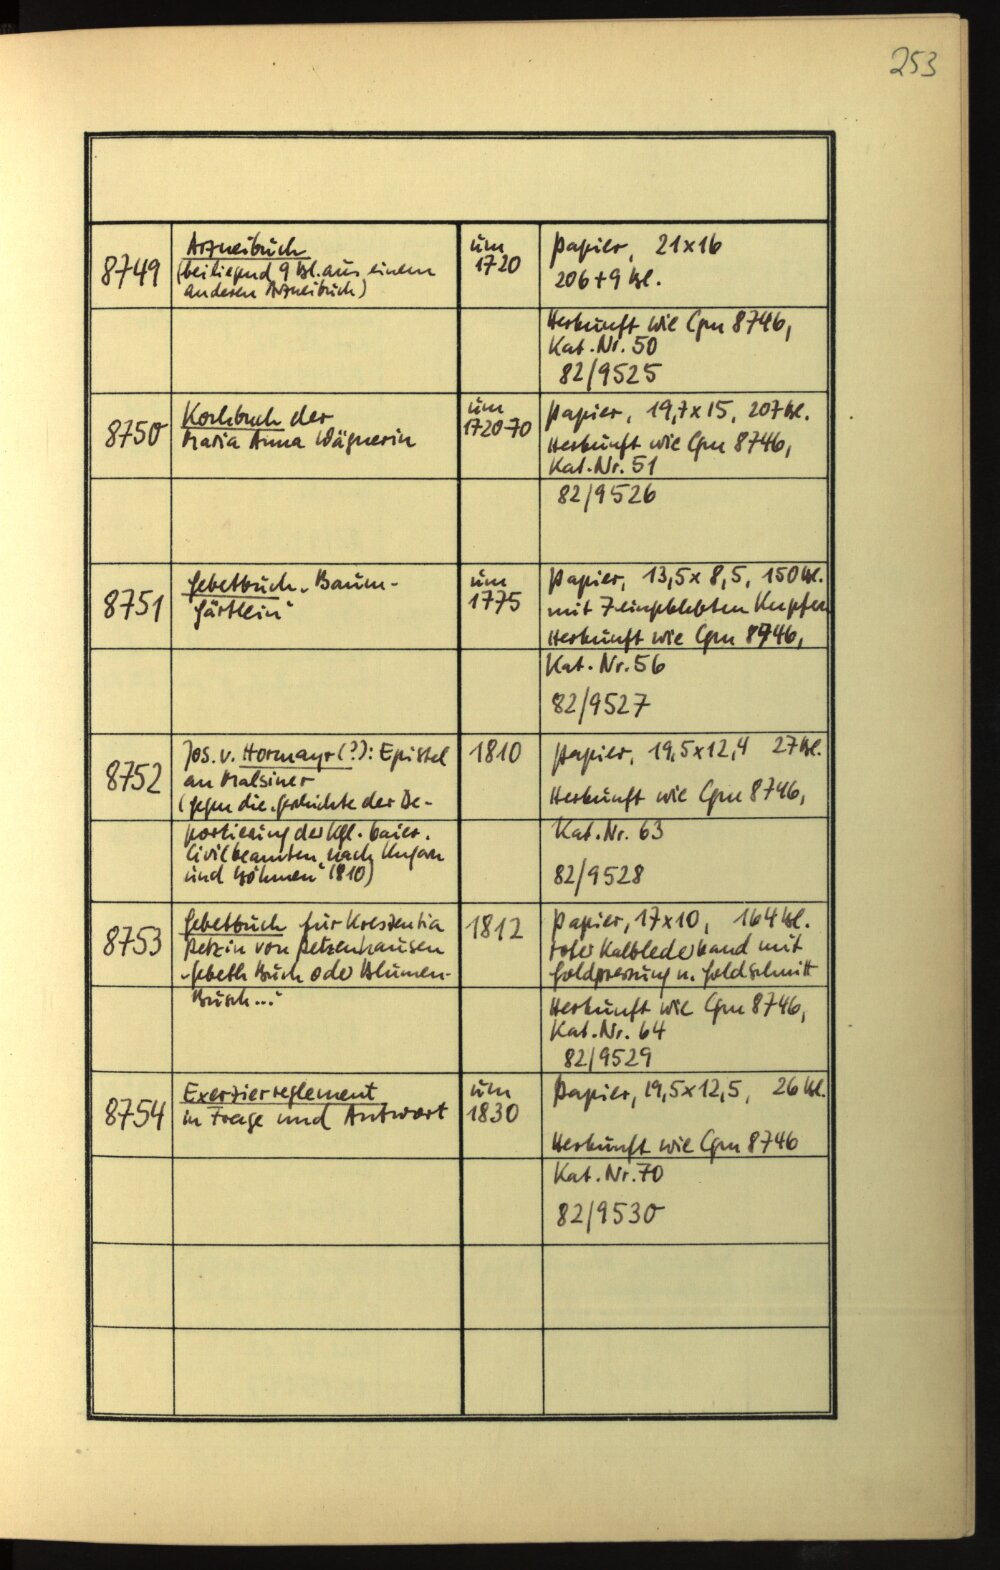 253
8749
Arzneibuch
(beiliegend 9 Bl. aus einem
anderen Arzneibuch)
um
1720
Papier, 21x16
206+9 Bl.
Herkunft wie Cgm 8746,
Kat.Nr. 50
82/9525
8750
Kochbuch der
Maria Anna Wägnerin
um
1720-70
Papier, 19,7x15, 207 Bl.
Herkunft wie Cgm 8746,
Kat.Nr. 51
82/9526
8751
Gebetbuch „Baum-
gärtlein“
um
1775
Papier, 13,5x8,5, 150 Bl.
mit 7 eingeklebten Kupfern
Herkunft wie Cgm 8746,
Kat. Nr. 56
82/9527
8752
Jos. v. Hormayr (?): Epistel
an Malsiner
(gegen die „Geschichte der De-
portierung der kgl. baier.
Civilbeamten nach Ungarn
und Böhmen“ 1810)
1810
Papier, 19,5x12,4 27 Bl.
Herkunft wie Cgm 8746,
Kat.Nr. 63
82/9528
8753
Gebetbuch für Kreszentia
Petzin von Petzenhausen
„Gebeth Buch oder Blumen-
Busch...“
1812
Papier, 17x10, 164 Bl.
roter Kalbledereinband mit
Goldpressung u. Goldschnitt
Herkunft wie Cgm 8746,
Kat.Nr. 64
82/9529
8754
Exerzierreglement
in Frage und Antwort
um
1830
Papier, 19,5x12,5, 26 Bl.
Herkunft wie Cgm 8746
Kat.Nr. 70
82/9530